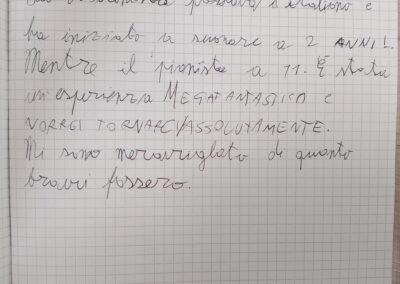 italiano e
ha iniziato a suonare a 2 ANNI!.
Mentre il pianista a 11. È stata
un'esperienza MEGAFANTASTICA e
VORREI TORNARCI ASSOLUTAMENTE.
Mi sono meravigliato di quanto
bravi fossero.